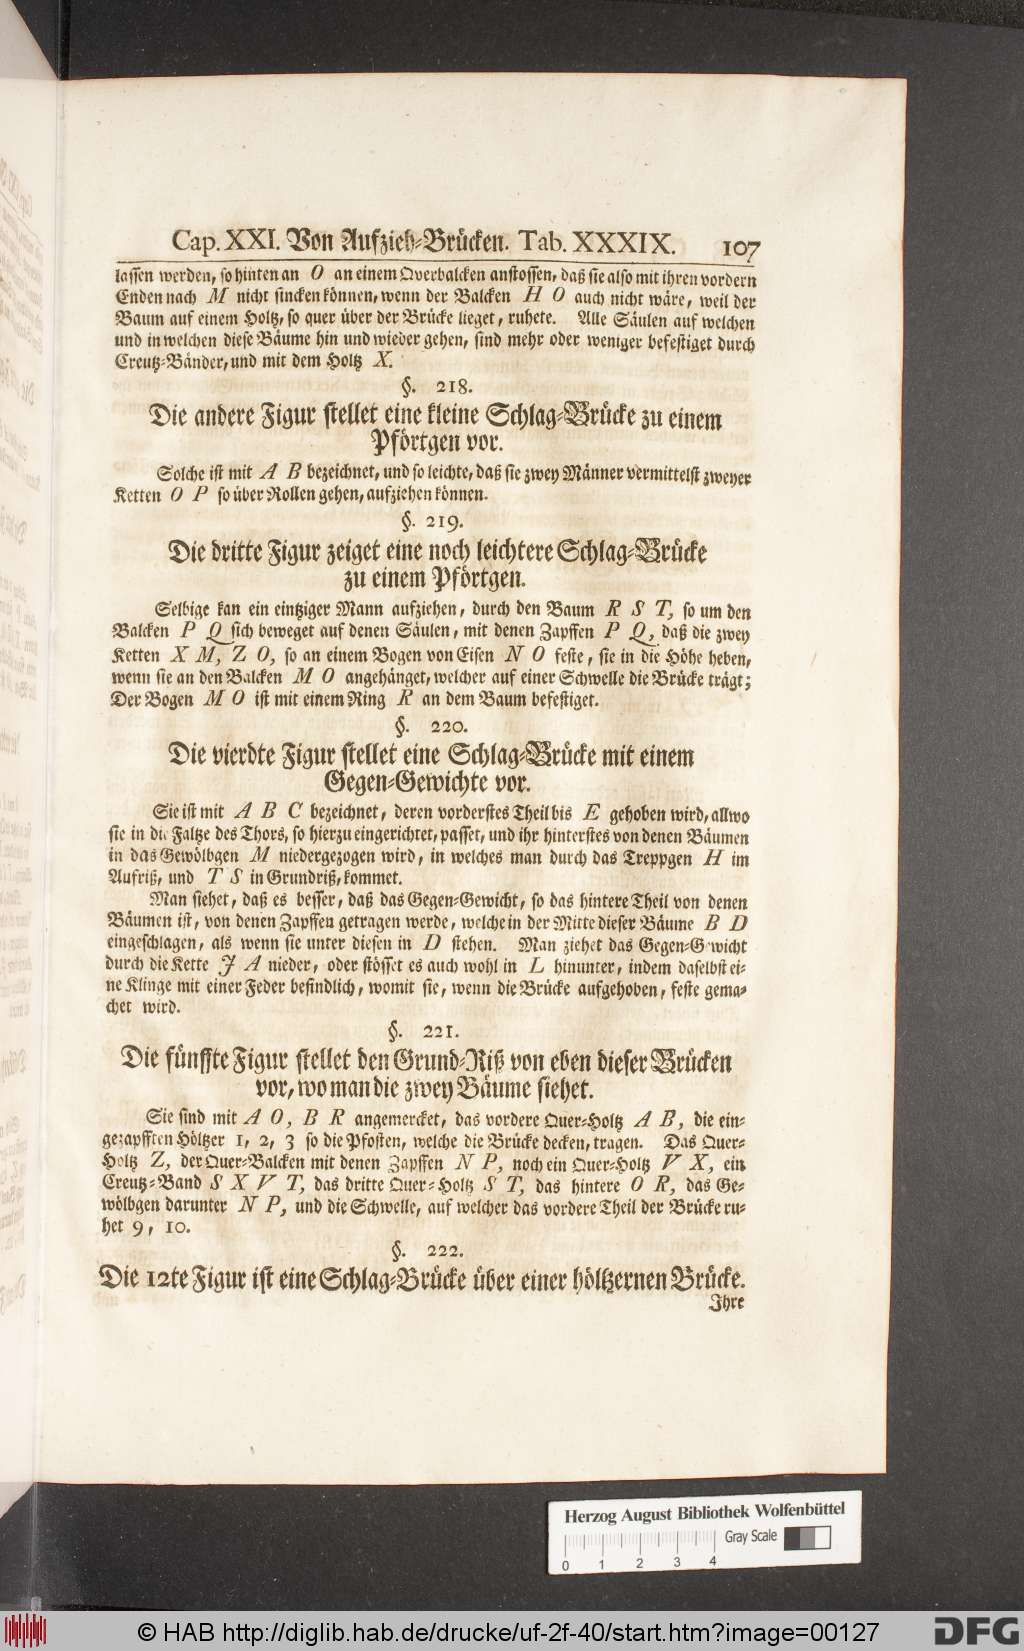 Cap. XXI. Von Aufzieh-Brücken. Tab. XXXIX. 107
lassen werden, so hinten an O an einem Overbalcken anstossen, daß sie also mit ihren vordern
Enden nach M nicht sincken können, wenn der Balcken H O auch nicht wäre, weil der
Baum auf einem Holtz, so quer über der Brücke lieget, ruhete. Alle Säulen auf welchen
und in welchen diese Bäume hin und wieder gehen, sind mehr oder weniger befestiget durch
Creutz-Bänder, und mit dem Holtz X.
§. 218.
Die andere Figur stellet eine kleine Schlag-Brücke zu einem
Pförtgen vor.
Solche ist mit A B bezeichnet, und so leichte, daß sie zwey Männer vermittelst zweyer
Ketten O P so über Rollen gehen, aufziehen können.
§. 219.
Die dritte Figur zeiget eine noch leichtere Schlag-Brücke
zu einem Pförtgen.
Selbige kan ein eintziger Mann aufziehen, durch den Baum R S T, so um den
Balcken P Q sich beweget auf denen Säulen, mit denen Zapffen P Q, daß die zwey
Ketten X M, Z O, so an einem Bogen von Eisen N O feste, sie in die Höhe heben,
wenn sie an den Balcken M O angehänget, welcher auf einer Schwelle die Brücke trägt;
Der Bogen M O ist mit einem Ring R an dem Baum befestiget.
§. 220.
Die vierdte Figur stellet eine Schlag-Brücke mit einem
Gegen-Gewichte vor.
Sie ist mit A B C bezeichnet, deren vorderstes Theil bis E gehoben wird, allwo
sie in die Faltze des Thors, so hierzu eingerichtet, passet, und ihr hinterstes von denen Bäumen
in das Gewölbgen M niedergezogen wird, in welches man durch das Treppgen H im
Aufriß, und T S in Grundriß, kommet.
Man siehet, daß es besser, daß das Gegen-Gewicht, so das hintere Theil von denen
Bäumen ist, von denen Zapffen getragen werde, welche in der Mitte dieser Bäume B D
eingeschlagen, als wenn sie unter diesen in D stehen. Man ziehet das Gegen-Gewicht
durch die Kette J A nieder, oder stösset es auch wohl in L hinunter, indem daselbst ei-
ne Klinge mit einer Feder befindlich, womit sie, wenn die Brücke aufgehoben, feste gema-
chet wird.
§. 221.
Die fünffte Figur stellet den Grund-Riß von eben dieser Brücken
vor, wo man die zwey Bäume siehet.
Sie sind mit A O, B R angemercket, das vordere Quer-Holtz A B, die ein-
gezapfften Höltzer 1, 2, 3 so die Pfosten, welche die Brücke decken, tragen. Das Quer-
Holtz Z, der Quer-Balcken mit denen Zapffen N P, noch ein Quer-Holtz V X, ein
Creutz-Band S X V T, das dritte Quer-Holtz S T, das hintere O R, das Ge-
wölbgen darunter N P, und die Schwelle, auf welcher das vordere Theil der Brücke ru-
het 9, 10.
§. 222.
Die 12te Figur ist eine Schlag-Brücke über einer höltzernen Brücke.
Ihre
Herzog August Bibliothek Wolfenbüttel
Gray Scale
0 1 2 3 4
© HAB http://diglib.hab.de/drucke/uf-2f-40/start.htm?image=00127
DFG